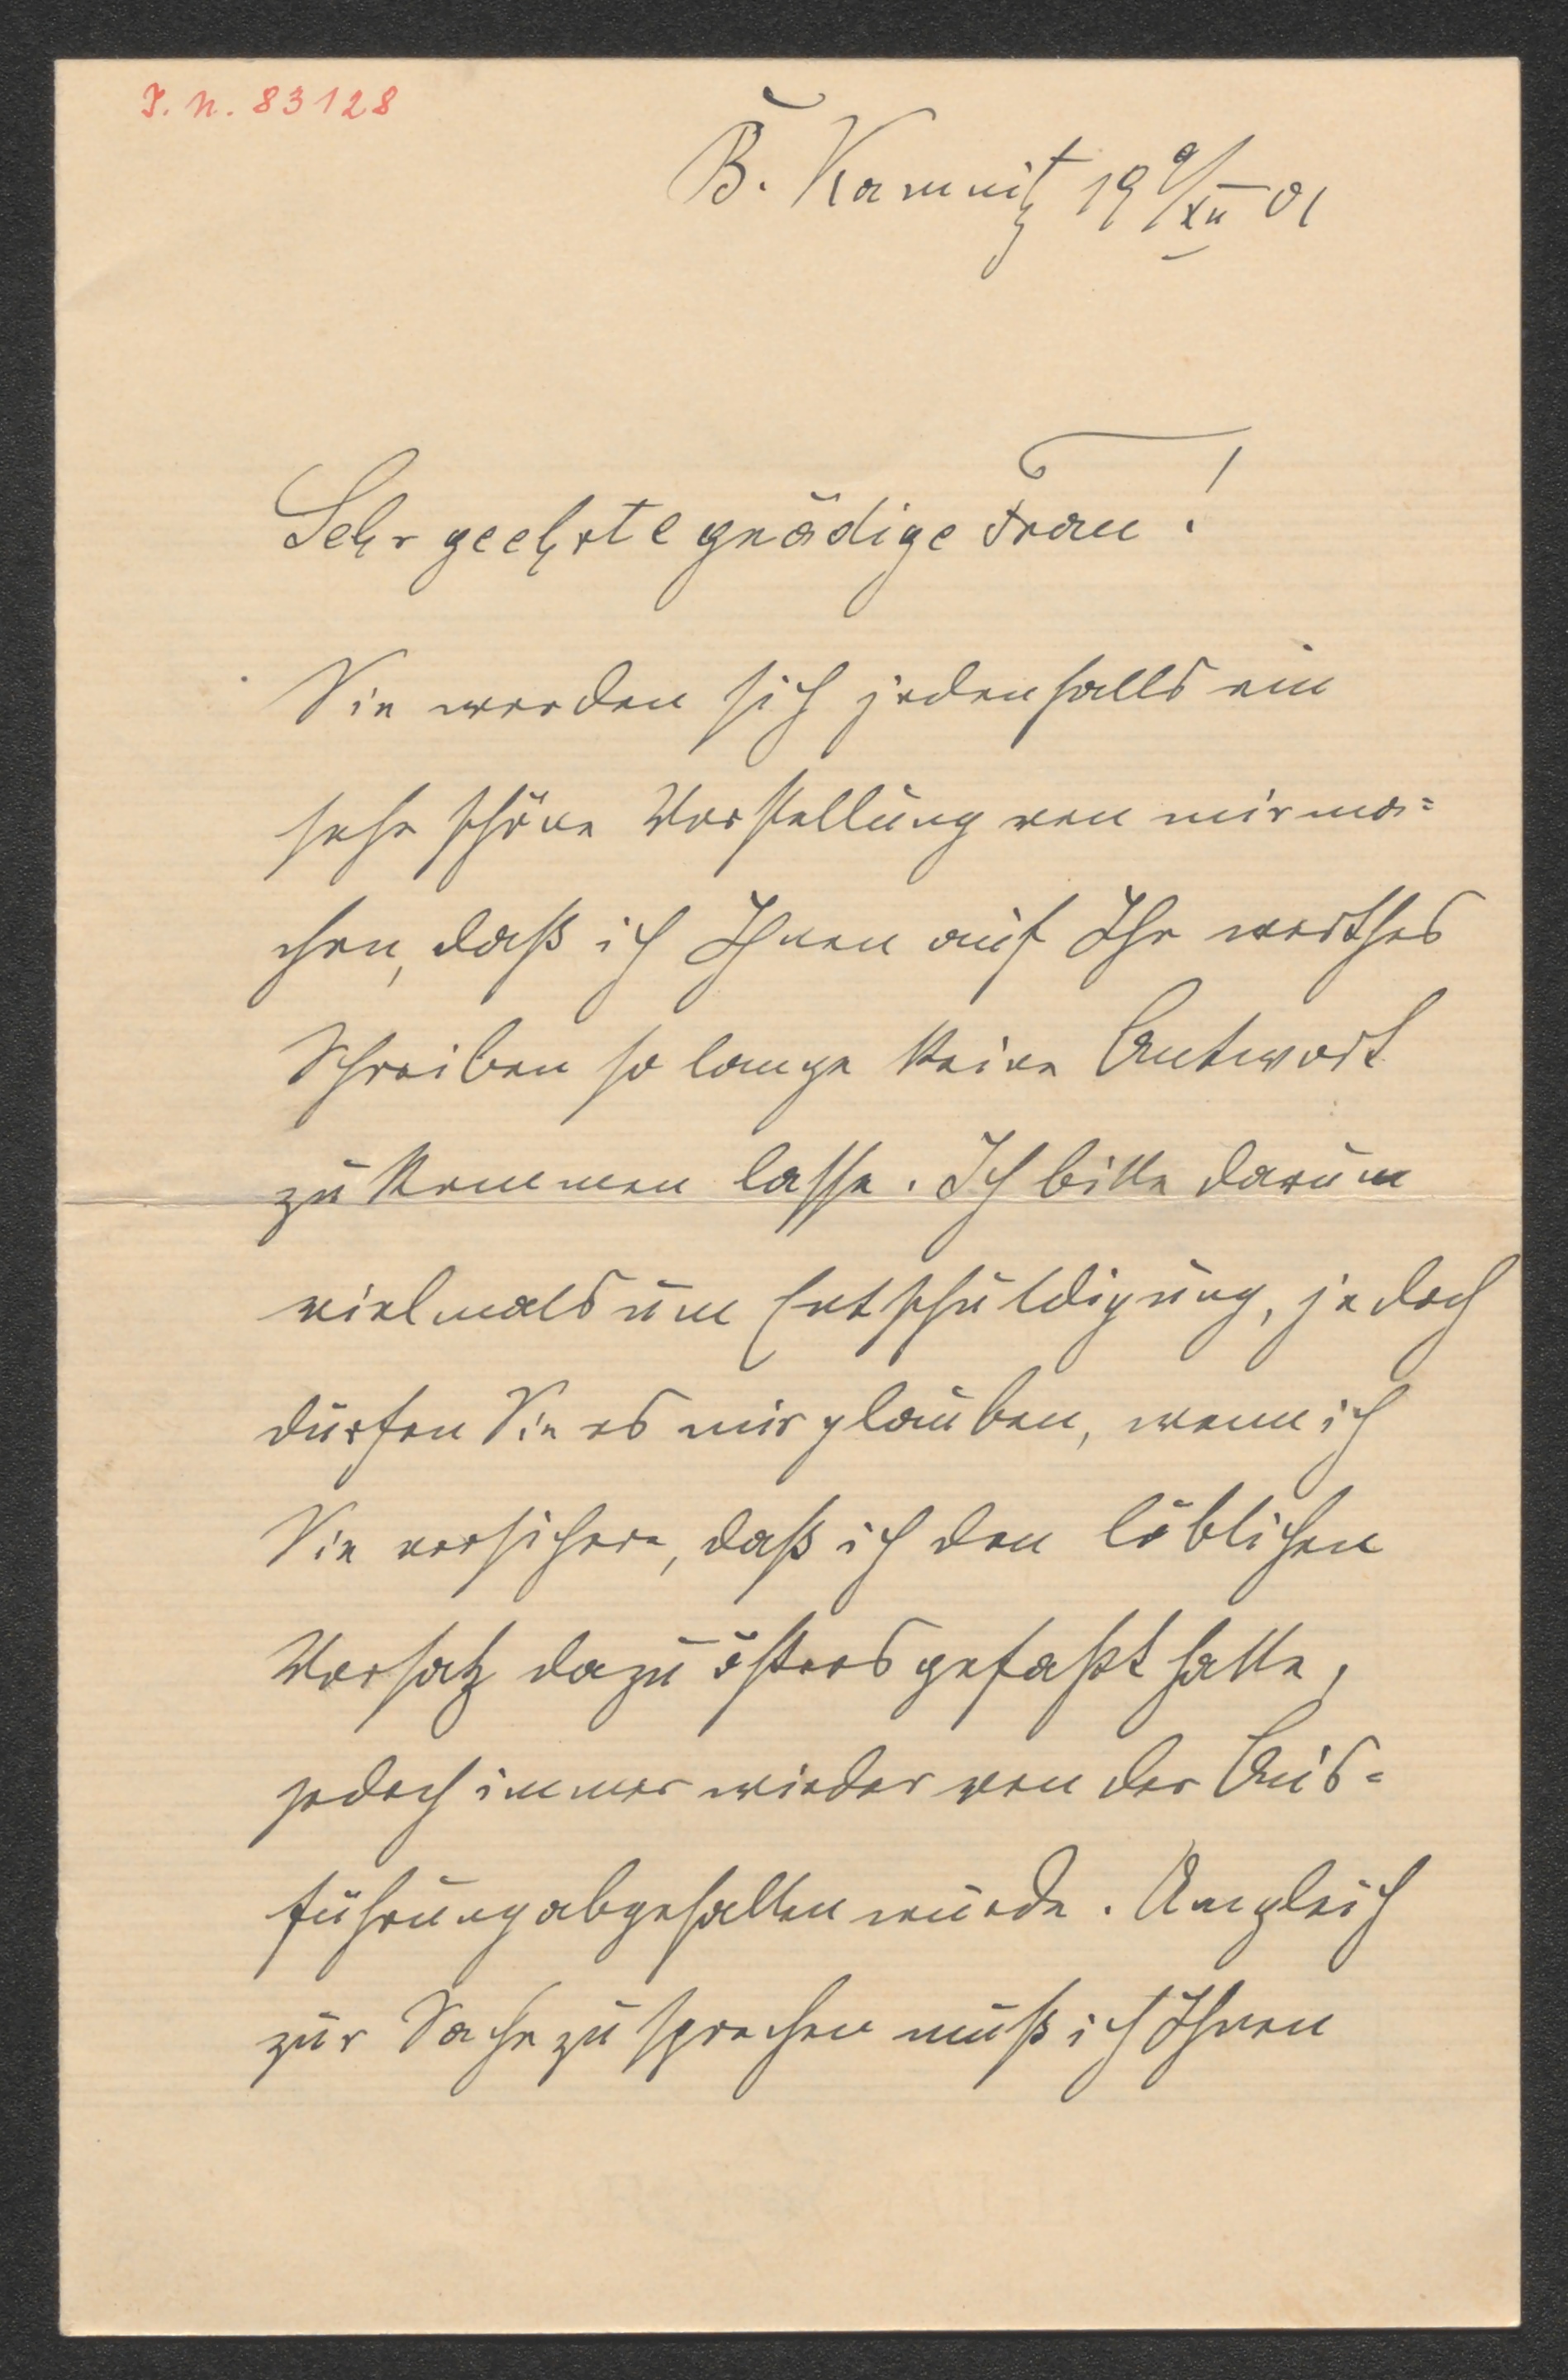 I. N. 83128
B. Kamnitz 19 9/XII 01
Sehr geehrte gnädige Frau!
Sie werden sich jedenfalls ein
sehr schöne Vorstellung von mir ma=
chen, daß ich Ihnen auf Ihr werthes
Schreiben so lange keine Antwort
zukommen lasse. Ich bitte darum
vielmals um Entschuldigung, jedoch
dürfen Sie es mir glauben, wenn ich
Sie versichere, daß ich den löblichen
Vorsatz dazu öfters gefaßt hatte,
jedoch immer wieder von der Aus=
führung abgehalten wurde. Um gleich
zur Sache zu sprechen muß ich Ihnen